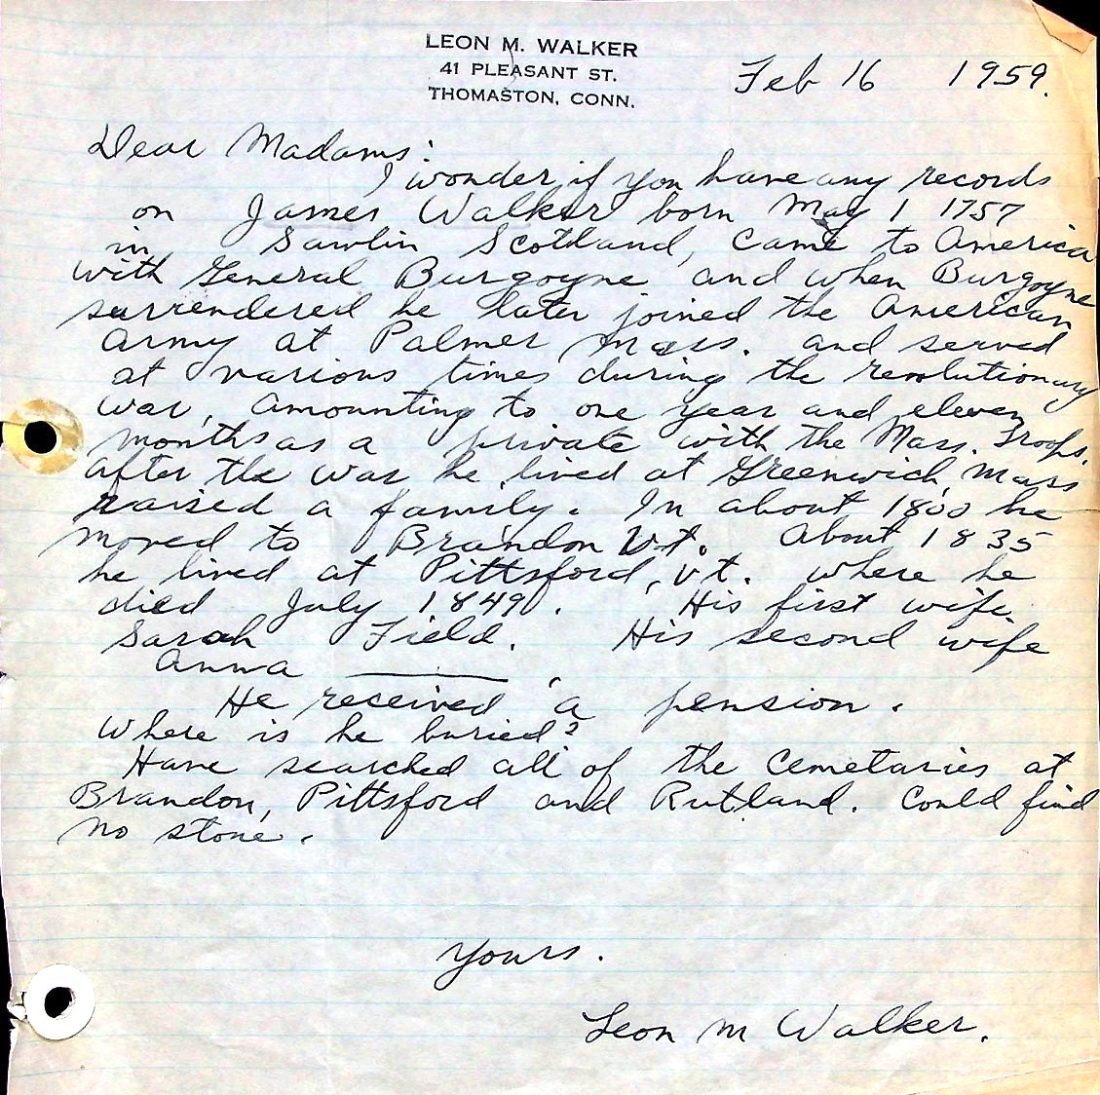 LEON M. WALKER
41 PLEASANT ST.
THOMASTON, CONN.
Feb 16 1959.
Dear Madams:
I wonder if you have any records
on James Walker born May 1 1757
in Sawlin Scotland, came to America
with General Burgoyne and when Burgoyne
surrendered he later joined the American
Army at Palmer Mass. and served
at various times during the revolutionary
war, amounting to one year and eleven
months as a private with the Mass. Troops.
After the war he lived at Greenwich, Mass
raised a family. In about 1800 he
moved to Brandon Vt. About 1835
he lived at Pittsford, Vt. where he
died July 1849. His first wife
Sarah Field. His second wife
Anna ______.
He received a pension.
Where is he buried?
Have searched all of the Cemetaries at
Brandon, Pittsford and Rutland. Could find
no stone.
Yours.
Leon M Walker.